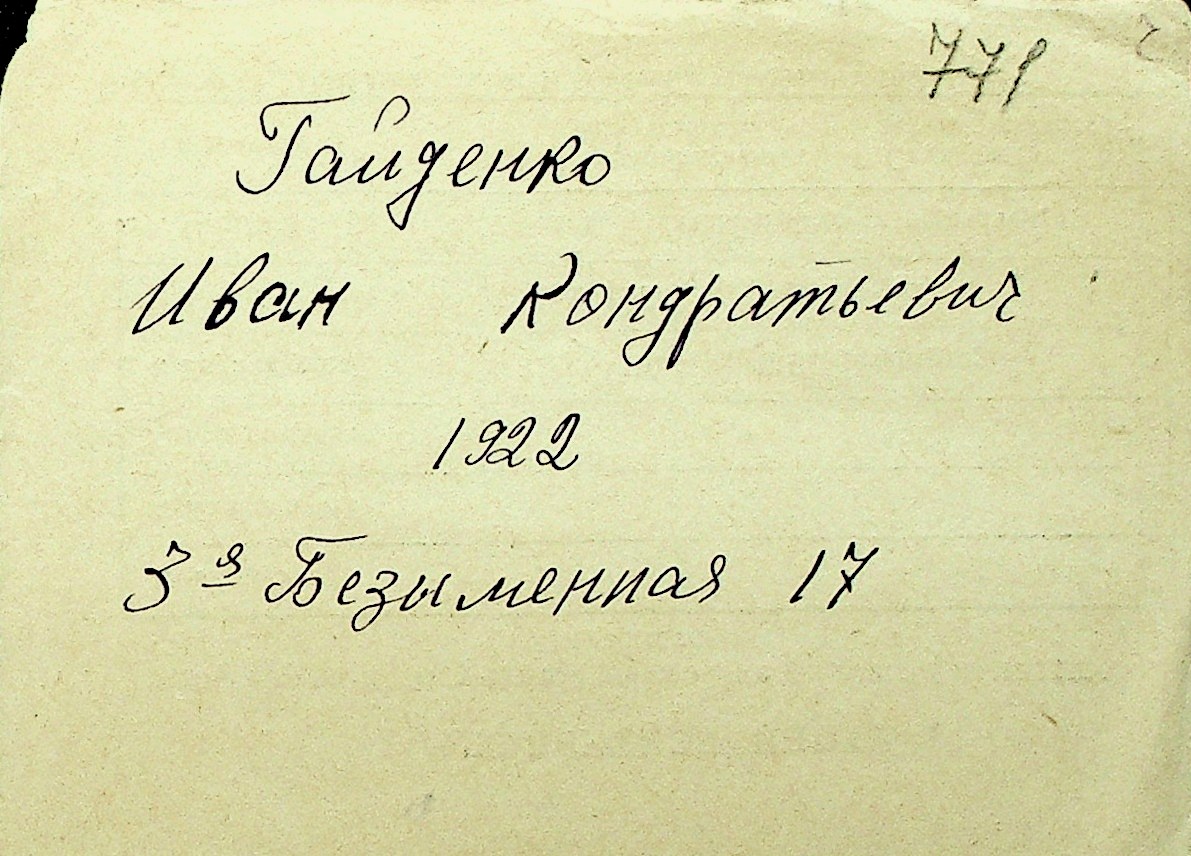 771
Гайденко
Иван Кондратьевич
1922
3я Безыменная 17